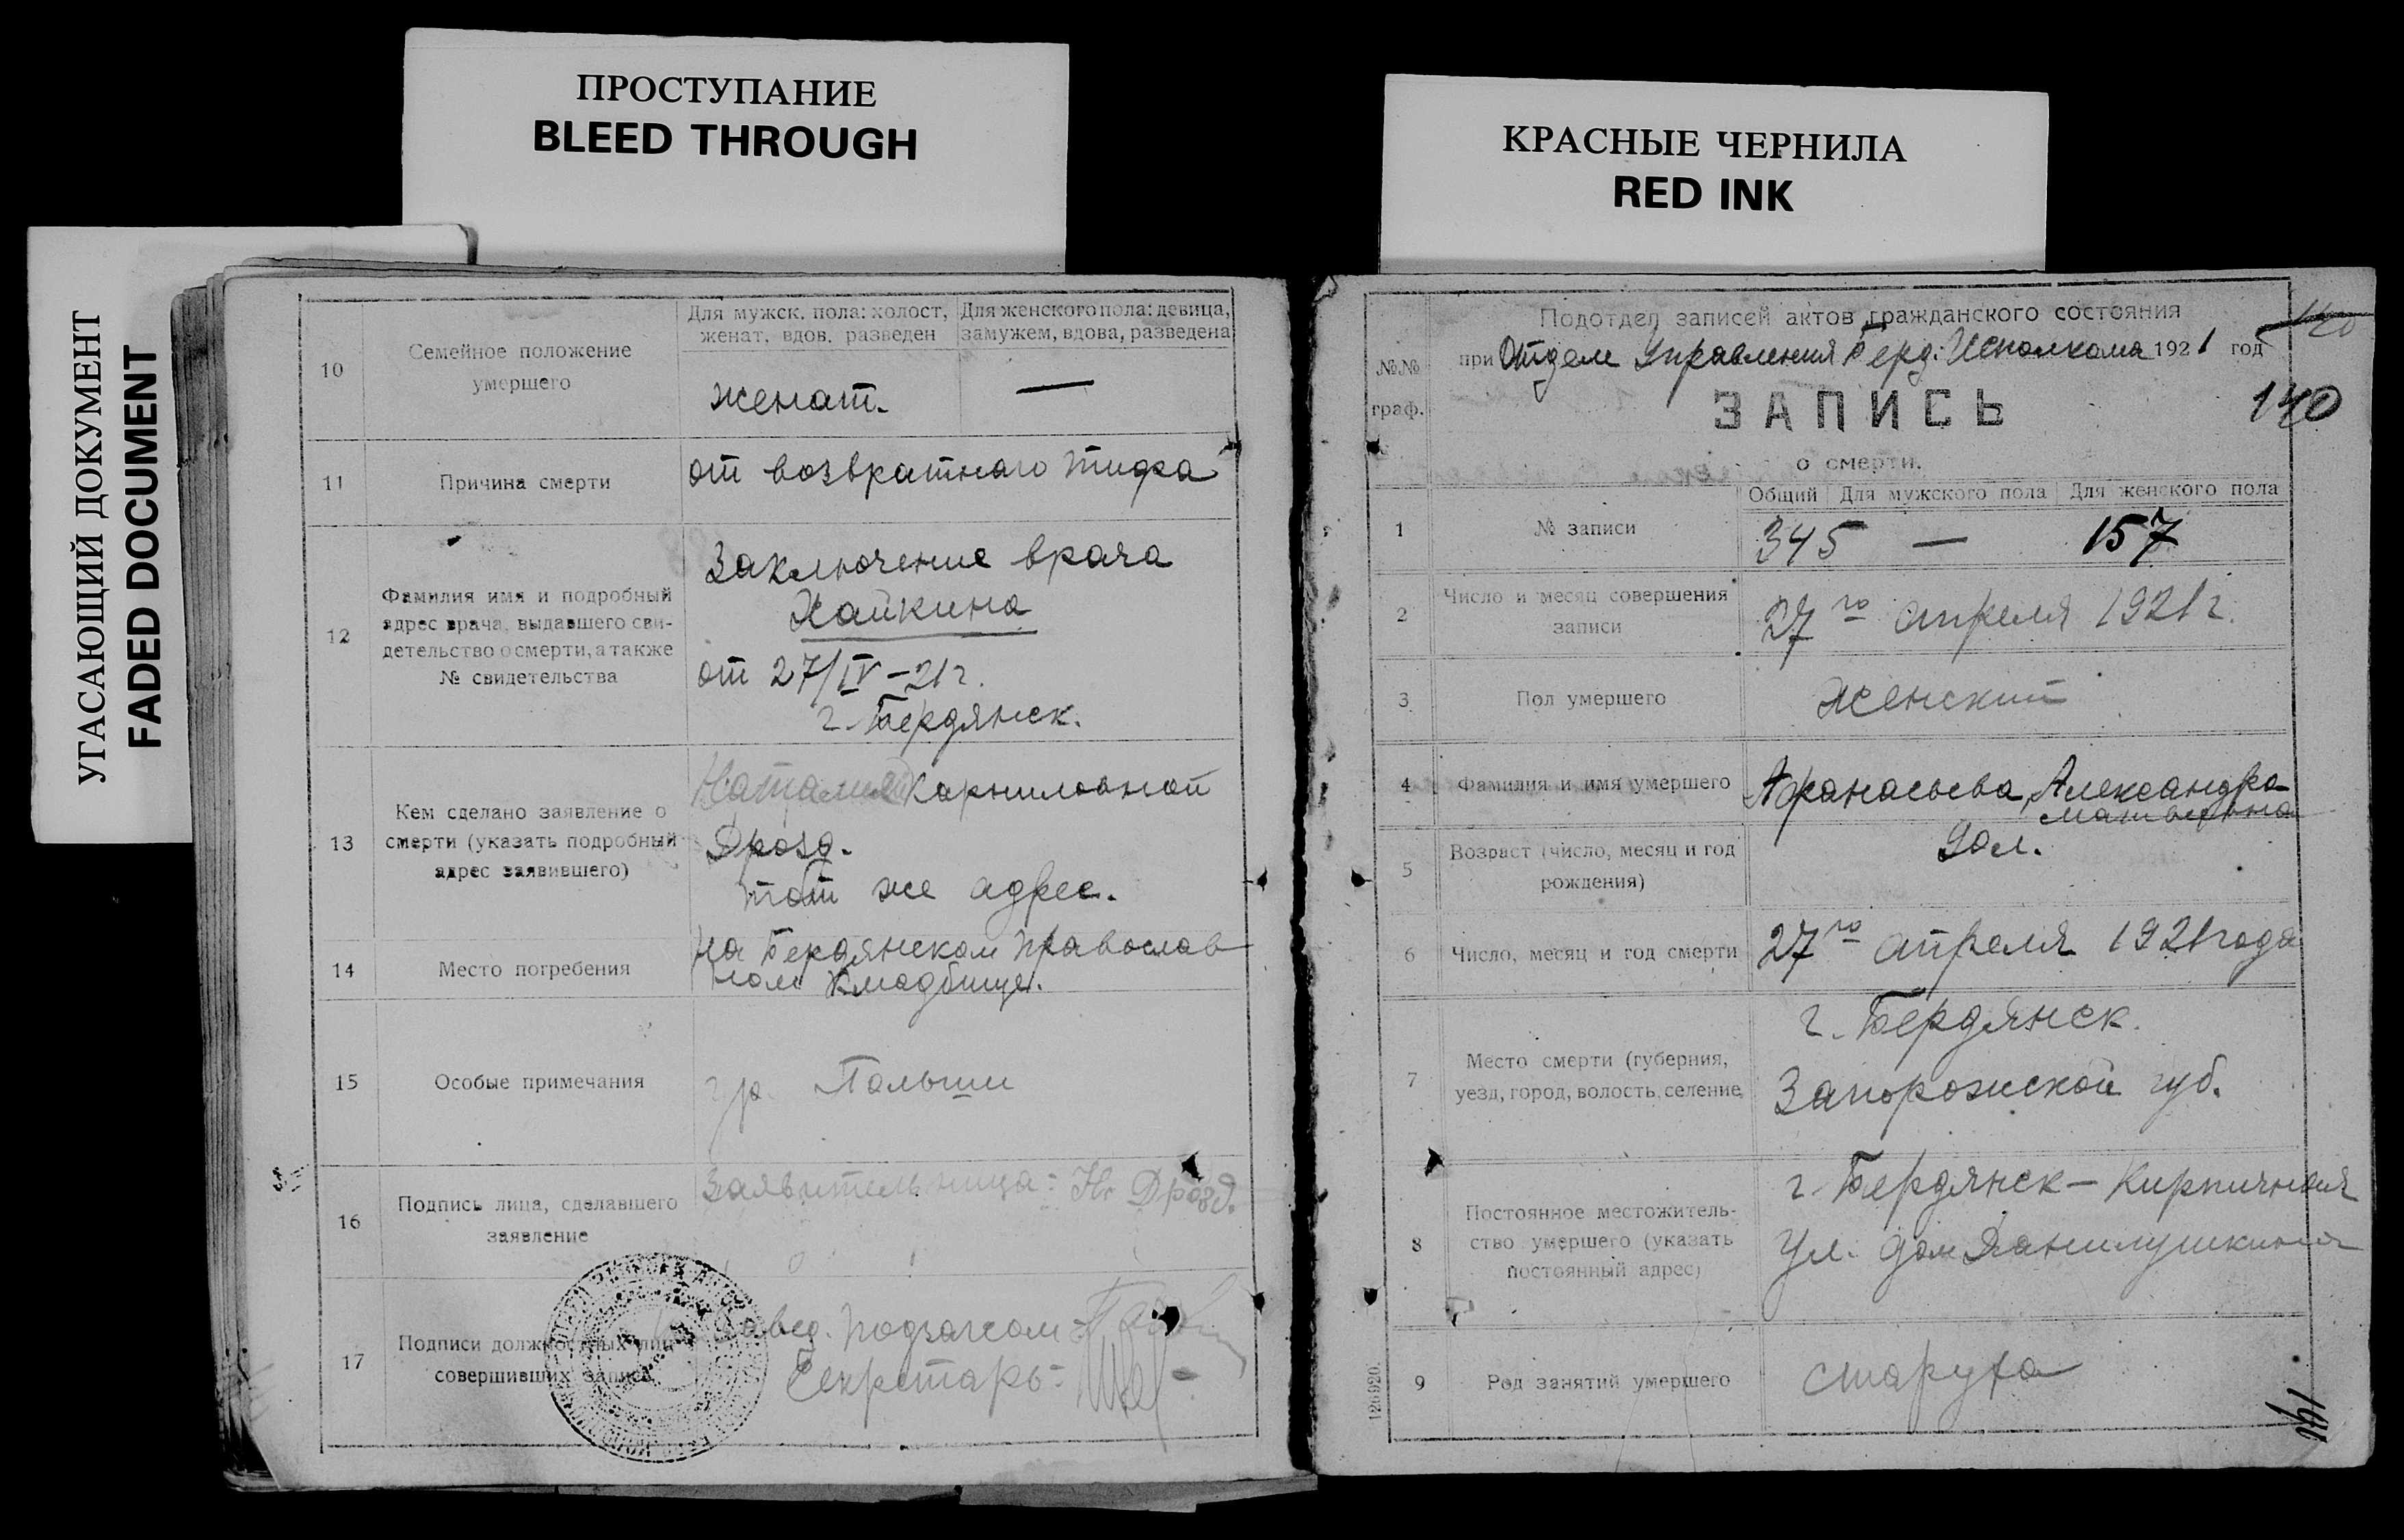 ПРОСТУПАНИЕ
BLEED THROUGH
КРАСНЫЕ ЧЕРНИЛА
RED INK
УГАСАЮЩИЙ ДОКУМЕНТ
FADED DOCUMENT
10
Семейное положение
умершего
Для мужск. пола: холост,
женат, вдов. разведен
Для женского пола: девица,
замужем, вдова, разведена
женат.
—
11
Причина смерти
от возвратнаго тифа
12
Фамилия имя и подробный
адрес врача, выдавшего сви-
детельство о смерти, а также
№ свидетельства
Заключение врача
Хайкина
от 27/IV – 21 г.
г. Бердянск.
13
Кем сделано заявление о
смерти (указать подробный
адрес заявившего)
Наталией Корниловной
Дрозд.
тот же адрес.
14
Место погребения
на Бердянском православ
ном кладбище.
15
Особые примечания
гр. Польши
16
Подпись лица, сделавшего
заявление
Заявительница: Н. Дрозд.
17
Подписи должностных лиц
совершивших запись
Завед. подзагсом
Секретарь:
№№
граф.
Подотдел записей актов гражданского состояния
при Отделе Управления Берд: Исполкома 1921 год
140
140
ЗАПИСЬ
о смерти.
1
№ записи
Общий Для мужского пола Для женского пола
345 — 157
2
Число и месяц совершения
записи
27го апреля 1921 г.
3
Пол умершего
Женский
4
Фамилия и имя умершего
Афанасьева, Александра
Матвеевна
5
Возраст (число, месяц и год
рождения)
90 л.
6
Число, месяц и год смерти
27го апреля 1921 года
7
Место смерти (губерния,
уезд, город, волость, селение,
г. Бердянск.
Запорожской губ.
8
Постоянное местожитель-
ство умершего (указать
постоянный адрес)
г. Бердянск – Кирпичная
ул. дом Данилушкина
9
Род занятий умершего
старуха
126920.